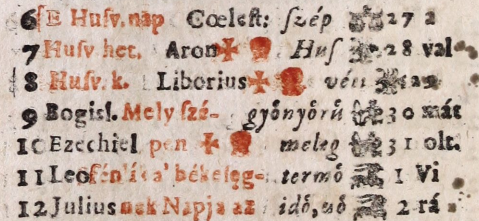 6 E Husv. nap Cœlest: szép 27 a
7 Husv het. Aron Hus 28 val
8 Husv. k. Liborius véti
9 Bogisl. Mely szé- gyönyörü 30 mát
10 Ezechiel pen meleg 31 olt.
11 Leo termö 1 Vi
12 Julius nak Napja az idö, uö 2 rá